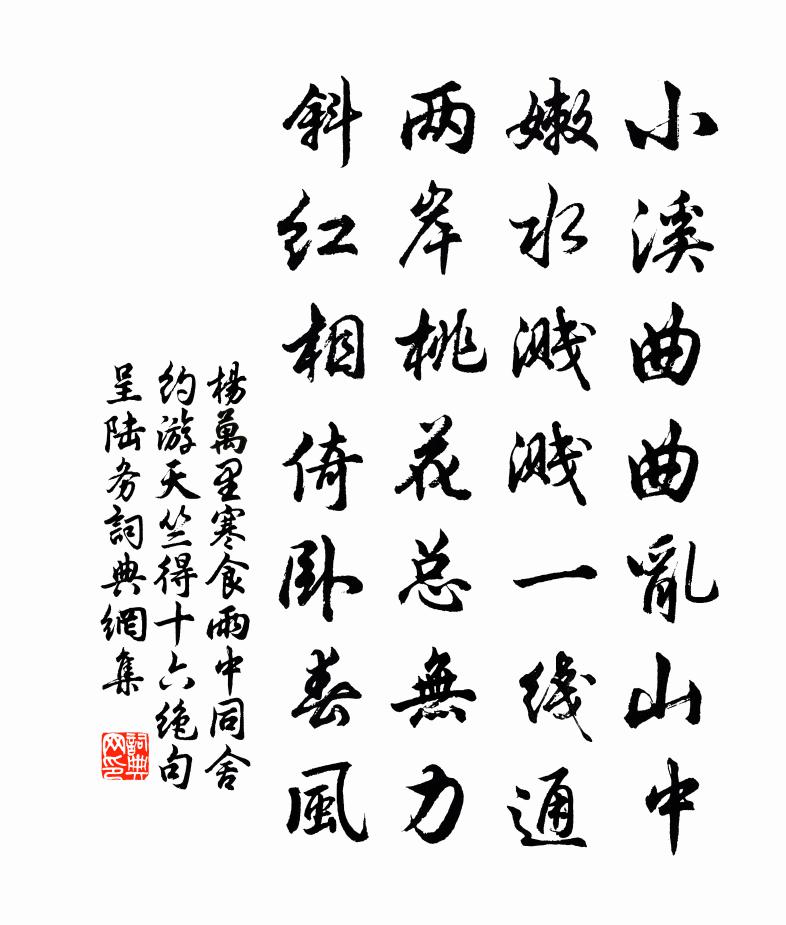 小溪曲曲亂山中
嫩水溅溅一线通
两岸桃花总無力
斜红相倚卧春風
楊萬里寒食雨中同舍
约游天竺得十六绝句
呈陆务詞典網集
詞典
网印